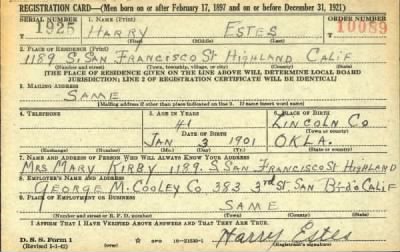 REGISTRATION CARD—(Men born on or after February 17, 1897 and on or before December 31, 1921)
SERIAL NUMBER 1. NAME (Print) ORDER NUMBER
1925 HARRY ESTES 10089
(First) (Middle) (Last)
2. PLACE OF RESIDENCE (Print)
1189 S. SAN FRANCISCO ST HIGHLAND CALIF
(Number and street) (Town, township, village, or city) (County) (State)
[THE PLACE OF RESIDENCE GIVEN ON THE LINE ABOVE WILL DETERMINE LOCAL BOARD
JURISDICTION; LINE 2 OF REGISTRATION CERTIFICATE WILL BE IDENTICAL]
3. MAILING ADDRESS
SAME
[Mailing address if other than place indicated on line 2. If same insert word same]
4. TELEPHONE 5. AGE IN YEARS 6. PLACE OF BIRTH
41 LINCOLN CO
DATE OF BIRTH (Town or county)
JAN 3 1901 OKLA.
(Exchange) (Number) (Mo.) (Day) (Yr.) (State or country)
7. NAME AND ADDRESS OF PERSON WHO WILL ALWAYS KNOW YOUR ADDRESS
MRS MARY KIRBY 1189. S. SAN FRANCISCO ST HIGHLAND
8. EMPLOYER'S NAME AND ADDRESS
GEORGE M. COOLEY CO. 383 3rd ST. SAN BrdO CALIF
9. PLACE OF EMPLOYMENT OR BUSINESS
SAME
(Number and street or R. F. D. number) (Town) (County) (State)
I AFFIRM THAT I HAVE VERIFIED ABOVE ANSWERS AND THAT THEY ARE TRUE.
D. S. S. Form 1 GPO 16—21630-1 Harry Estes
(Revised 1-1-42) (Registrant's signature)